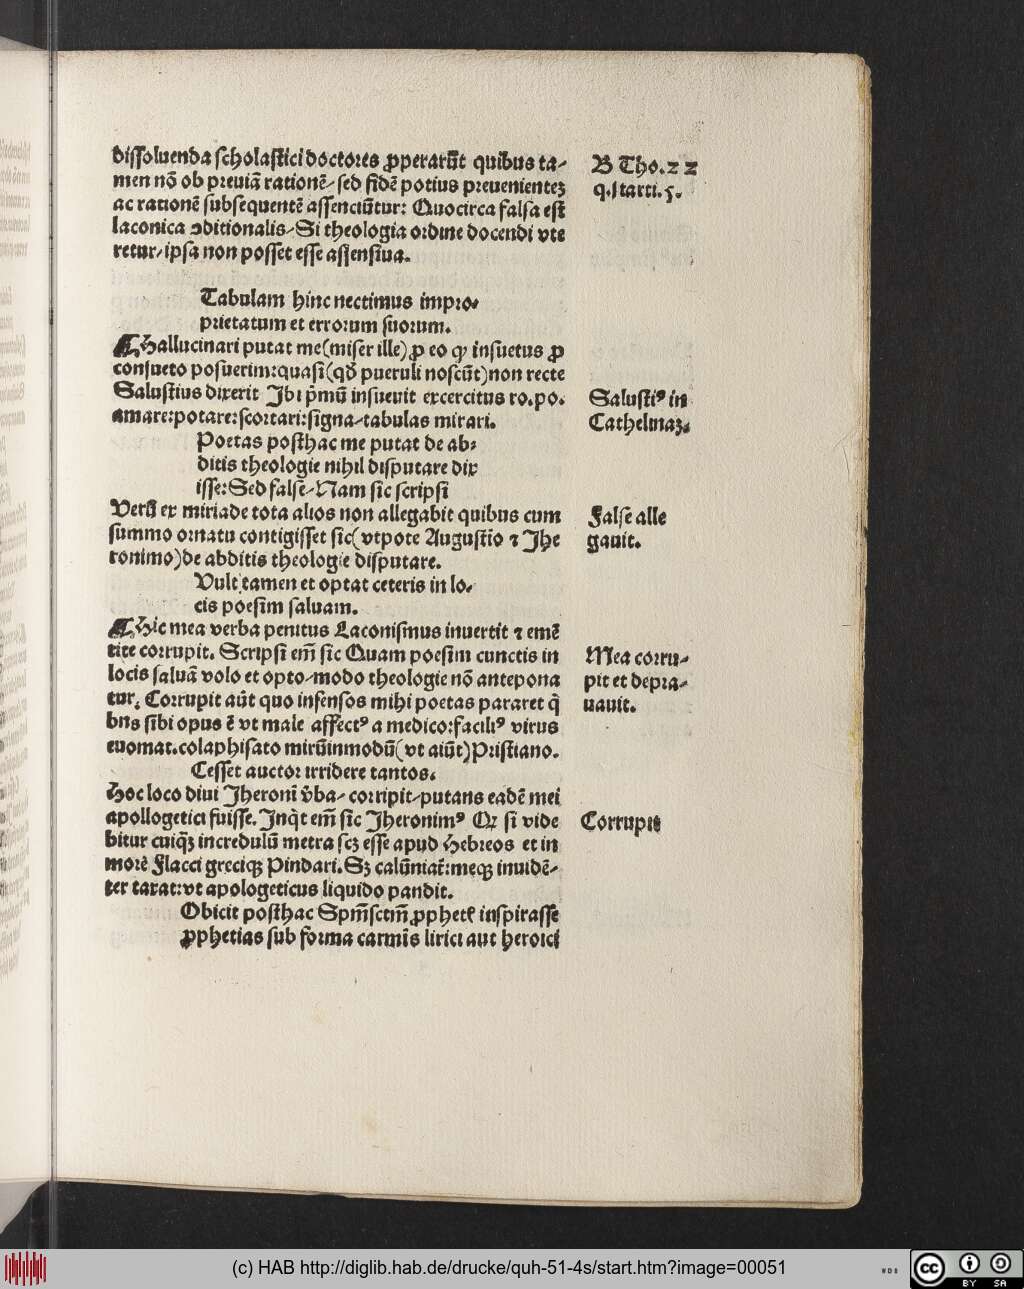 dissoluenda scholastici doctores ꝓperarūt quibus ta⸗
men nō ob preuiā rationē/sed fidē potius preuenientez
ac rationē subsequentē assenciūtur: Quocirca falsa est
laconica ꝯditionalis/Si theologia ordine docendi vte
retur/ipsa non posset esse assensiua.
B Tho. 2 2
q. I tarti. 5.
Tabulam hinc nectimus impro⸗
prietatum et errorum suorum.
¶Hallucinari putat me(miser ille)ꝓ eo ꝙ insuetus ꝓ
consueto posuerim:quasi(qd̄ pueruli noscūt)non recte
Salustius dixerit Ibi p̄mū insueuit excercitus ro.po.
amare:potare:scortari:signa/tabulas mirari.
Salustiꝰ in
Cathelinaz.
Poetas posthac me putat de ab⸗
ditis theologie nihil disputare dix
isse:Sed false/Nam sic scripsi
Verū ex miriade tota alios non allegabit quibus cum
summo ornatu contigisset sic(vtpote Augustīo ⁊ Jhe
ronimo)de abditis theologie disputare.
False alle
gauit.
Vult tamen et optat ceteris in lo⸗
cis poesim saluam.
¶Hic mea verba penitus Laconismus inuertit ⁊ emē
tite corrupit. Scripsi em̄ sic Quam poesim cunctis in
locis saluā volo et opto/modo theologie nō antepona
tur. Corrupit aūt quo infensos mihi poetas pararet q̄
bus sibi opus ē vt male affectꝰ a medico:faciliꝰ virus
euomat.colaphisato mirūinmodū(vt aiūt)Prisciano.
Mea corru⸗
pit et depra⸗
uauit.
Cesset auctor irridere tantos.
Hoc loco diui Jheroni v̄ba/ corripit/putans eadē mei
apollogetici fuisse. Inq̄t em̄ sic Jheronimꝰ Qꝫ si vide
bitur cuiqꝫ incredulū metra scꝫ esse apud Hebreos et in
morē Flacci greciqꝫ Pindari. Sꝫ calūniat̄:meqꝫ inuidē⸗
ter taxat:vt apologeticus liquido pandit.
Corrupit
Obicit posthac Spm̄sctm̄ ꝓphete inspirasse
ꝓphetias sub forma carmīs lirici aut heroici
(c) HAB http://diglib.hab.de/drucke/quh-51-4s/start.htm?image=00051
WDB
cc BY SA